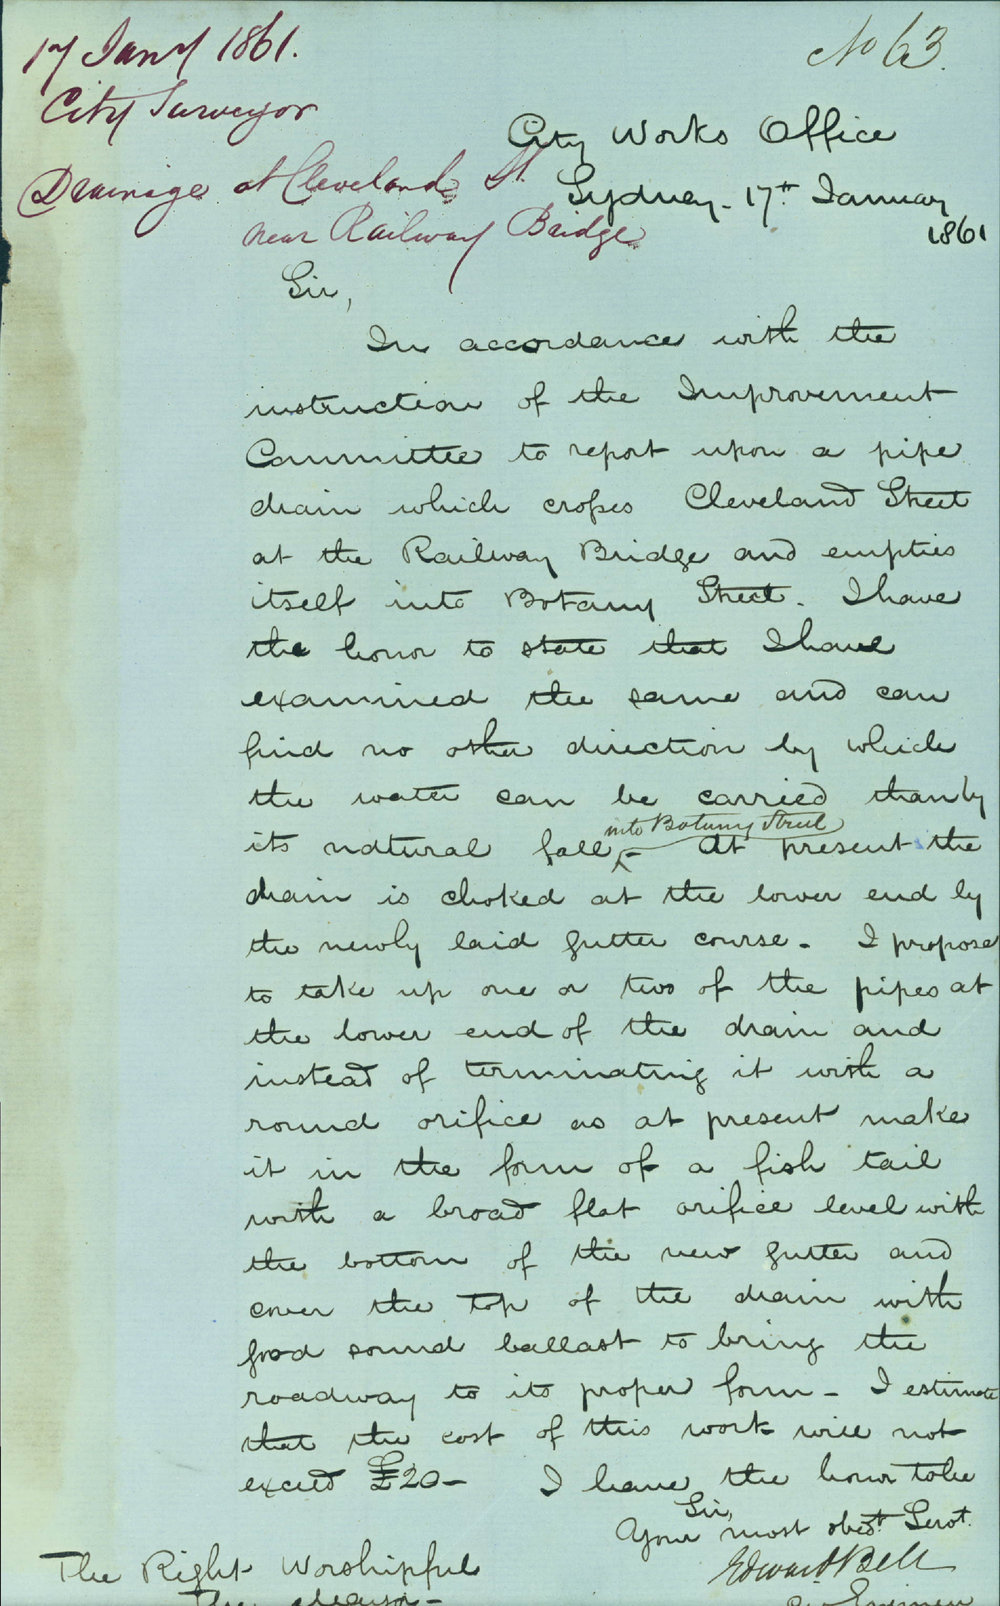 17 Jany 1861.
No 63.
City Surveyor
Drainage at Cleveland St.
near Railway Bridge
City Works Office
Sydney - 17th January
1861
Sir,
In accordance with the
instruction of the Improvement
Committee to report upon a pipe
drain which crosses Cleveland Street
at the Railway Bridge and empties
itself into Botany Street. I have
the honor to state that I have
examined the same and can
find no other direction by which
the water can be carried than by
into Botany Street
its natural fall - At present the
drain is choked at the lower end by
the newly laid gutter course - I propose
to take up one or two of the pipes at
the lower end of the drain and
instead of terminating it with a
round orifice as at present make
it in the form of a fish tail
with a broad flat orifice level with
the bottom of the new gutter and
cover the top of the drain with
good sound ballast to bring the
roadway to its proper form - I estimate
that the cost of this work will not
exceed £20 - I have the honor to be
Sir,
Your most obedt. Servt.
Edward Bell
The Right Worshipful
The Mayor -